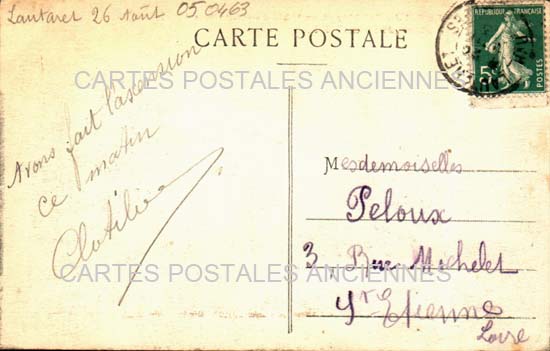 Lautaret 26 Août 050463
CARTE POSTALE
REPUBLIQUE FRANÇAISE
5c
CARTES POSTALES ANCIENNES
Avons fait l'ascension
ce matin
Clotilde
Mesdemoiselles
Peloux
3, Bue Michelet
CARTES POSTALES ANCIENNES
St Etienne
Loire